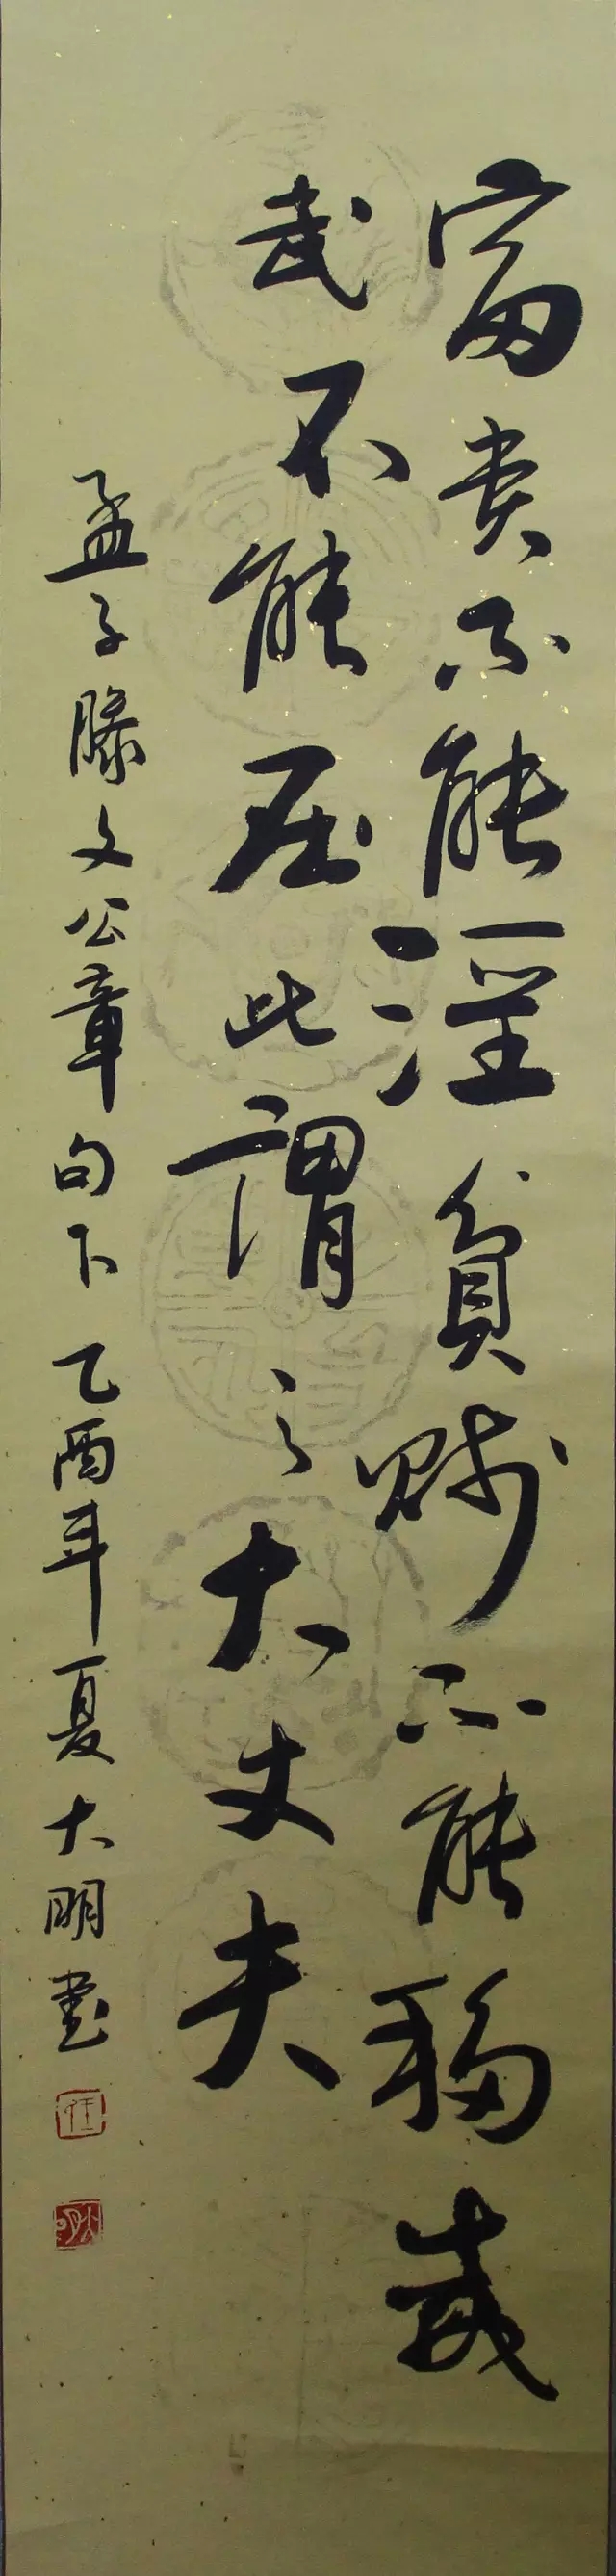 富贵不能淫贫贱不能移威
武不能屈此谓之大丈夫
孟子滕文公章句下 乙酉年夏大明书
任